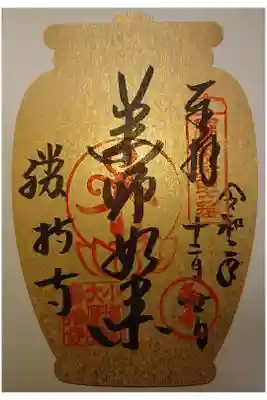 奉拝
令和二年
十二月廿日
薬師如来
勝持寺